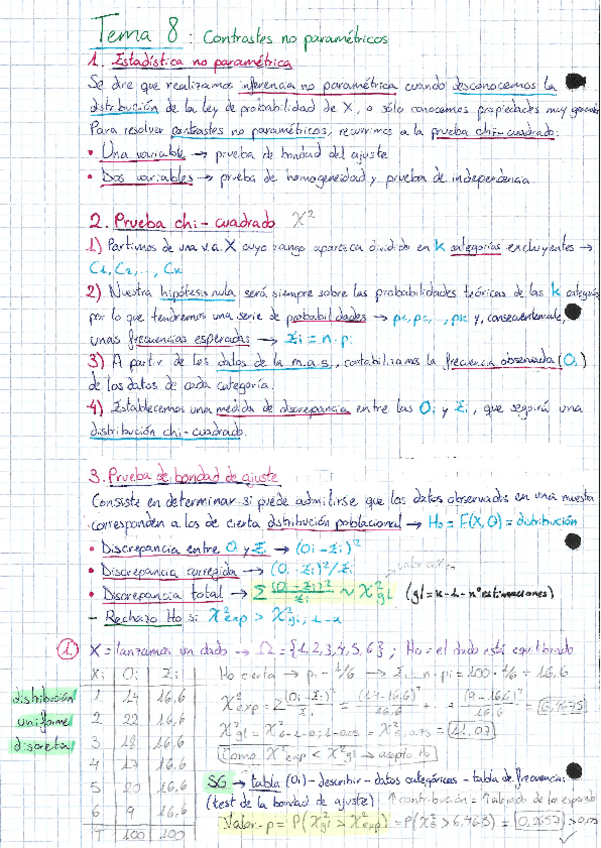 Tema 8: Contrastes no paramétricos
1. Estadística no paramétrica
Se dice que realizamos inferencia no paramétrica cuando desconocemos la
distribución de la ley de probabilidad de X, o sólo conocemos propiedades muy generales
Para resolver contrastes no paramétricos, recurrimos a la prueba chi-cuadrado:
• Una variable → prueba de bondad del ajuste
• Dos variables → prueba de homogeneidad y prueba de independencia.
2. Prueba chi-cuadrado X²
1) Partimos de una v.a. X cuyo rango aparezca dividido en k categorías excluyentes →
C1, C2, .., Ck
2) Nuestra hipótesis nula, será siempre sobre las probabilidades teóricas de las k categorías
por lo que tendremos una serie de probabilidades → p1, p2, , pk y, consecuentemente,
unas frecuencias esperadas → Ei = n·pi
3) A partir de los datos de la m.a.s., contabilizamos la frecuencia observada (Oi)
de los datos de cada categoría.
4) Establecemos una medida de discrepancia entre las Oi y Ei, que seguirá una
distribución chi-cuadrado.
3. Prueba de bondad de ajuste
Consiste en determinar si puede admitirse que los datos observados en una muestra
corresponden a los de cierta distribución poblacional → Ho = F(X, O) = distribución
• Discrepancia entre Oi y Ei → (Oi - Ei)²
• Discrepancia corregida → (Oi - Ei)²/Ei
• Discrepancia total → Σ (Oi - Ei)²/Ei ~ X²gl (gl = k-1-nº estimaciones)
- Rechazo Ho si X²exp > X²gl; 1-α
1. X = lanzamos un dado → Ω = {1,2,3,4,5,6}; Ho = el dado está equilibrado
Xi Oi Ei Ho cierta → pi = 1/6 → Ei = n·pi = 100·1/6 = 16,6
distribución 1 14 16,6
uniforme 2 22 16,6
discreta 3 18 16,6
4 17 16,6
5 20 16,6
6 9 16,6
T 100 100
X²exp = Σ (Oi-Ei)²/Ei = (14-16,6)²/16,6 + ... + (9-16,6)²/16,6
= 11,07
Como X²exp < X²gl → acepto Ho
SG → tabla (Oi) - describir - datos categóricos - tabla de frecuencias
(test de la bondad de ajuste) ↑ contribución = ↑ alejado de lo esperado
Valor-p = P(X²gl > X²exp)